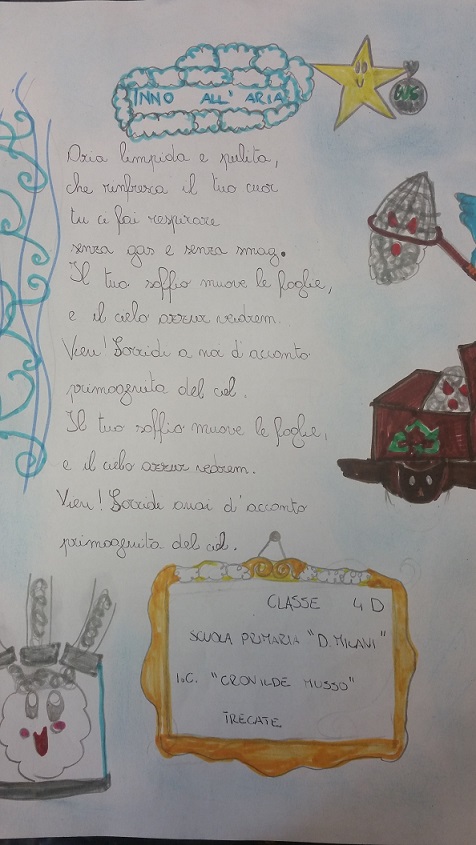 INNO ALL'ARIA
Aria limpida e pulita,
che rinfresca il tuo cuor
tu ci fai respirare
senza gas e senza smog.
Il tuo soffio muove le foglie,
e il cielo azzur vedrem.
Vieni! Sorridi a noi d'accanto
primogenita del ciel.
Il tuo soffio muove le foglie,
e il cielo azzur vedrem.
Vieni! Sorridi a noi d'accanto
primogenita del ciel.
CLASSE 4 D
SCUOLA PRIMARIA "D. MILANI"
I.C. "CRONILDE MUSSO"
TRECATE